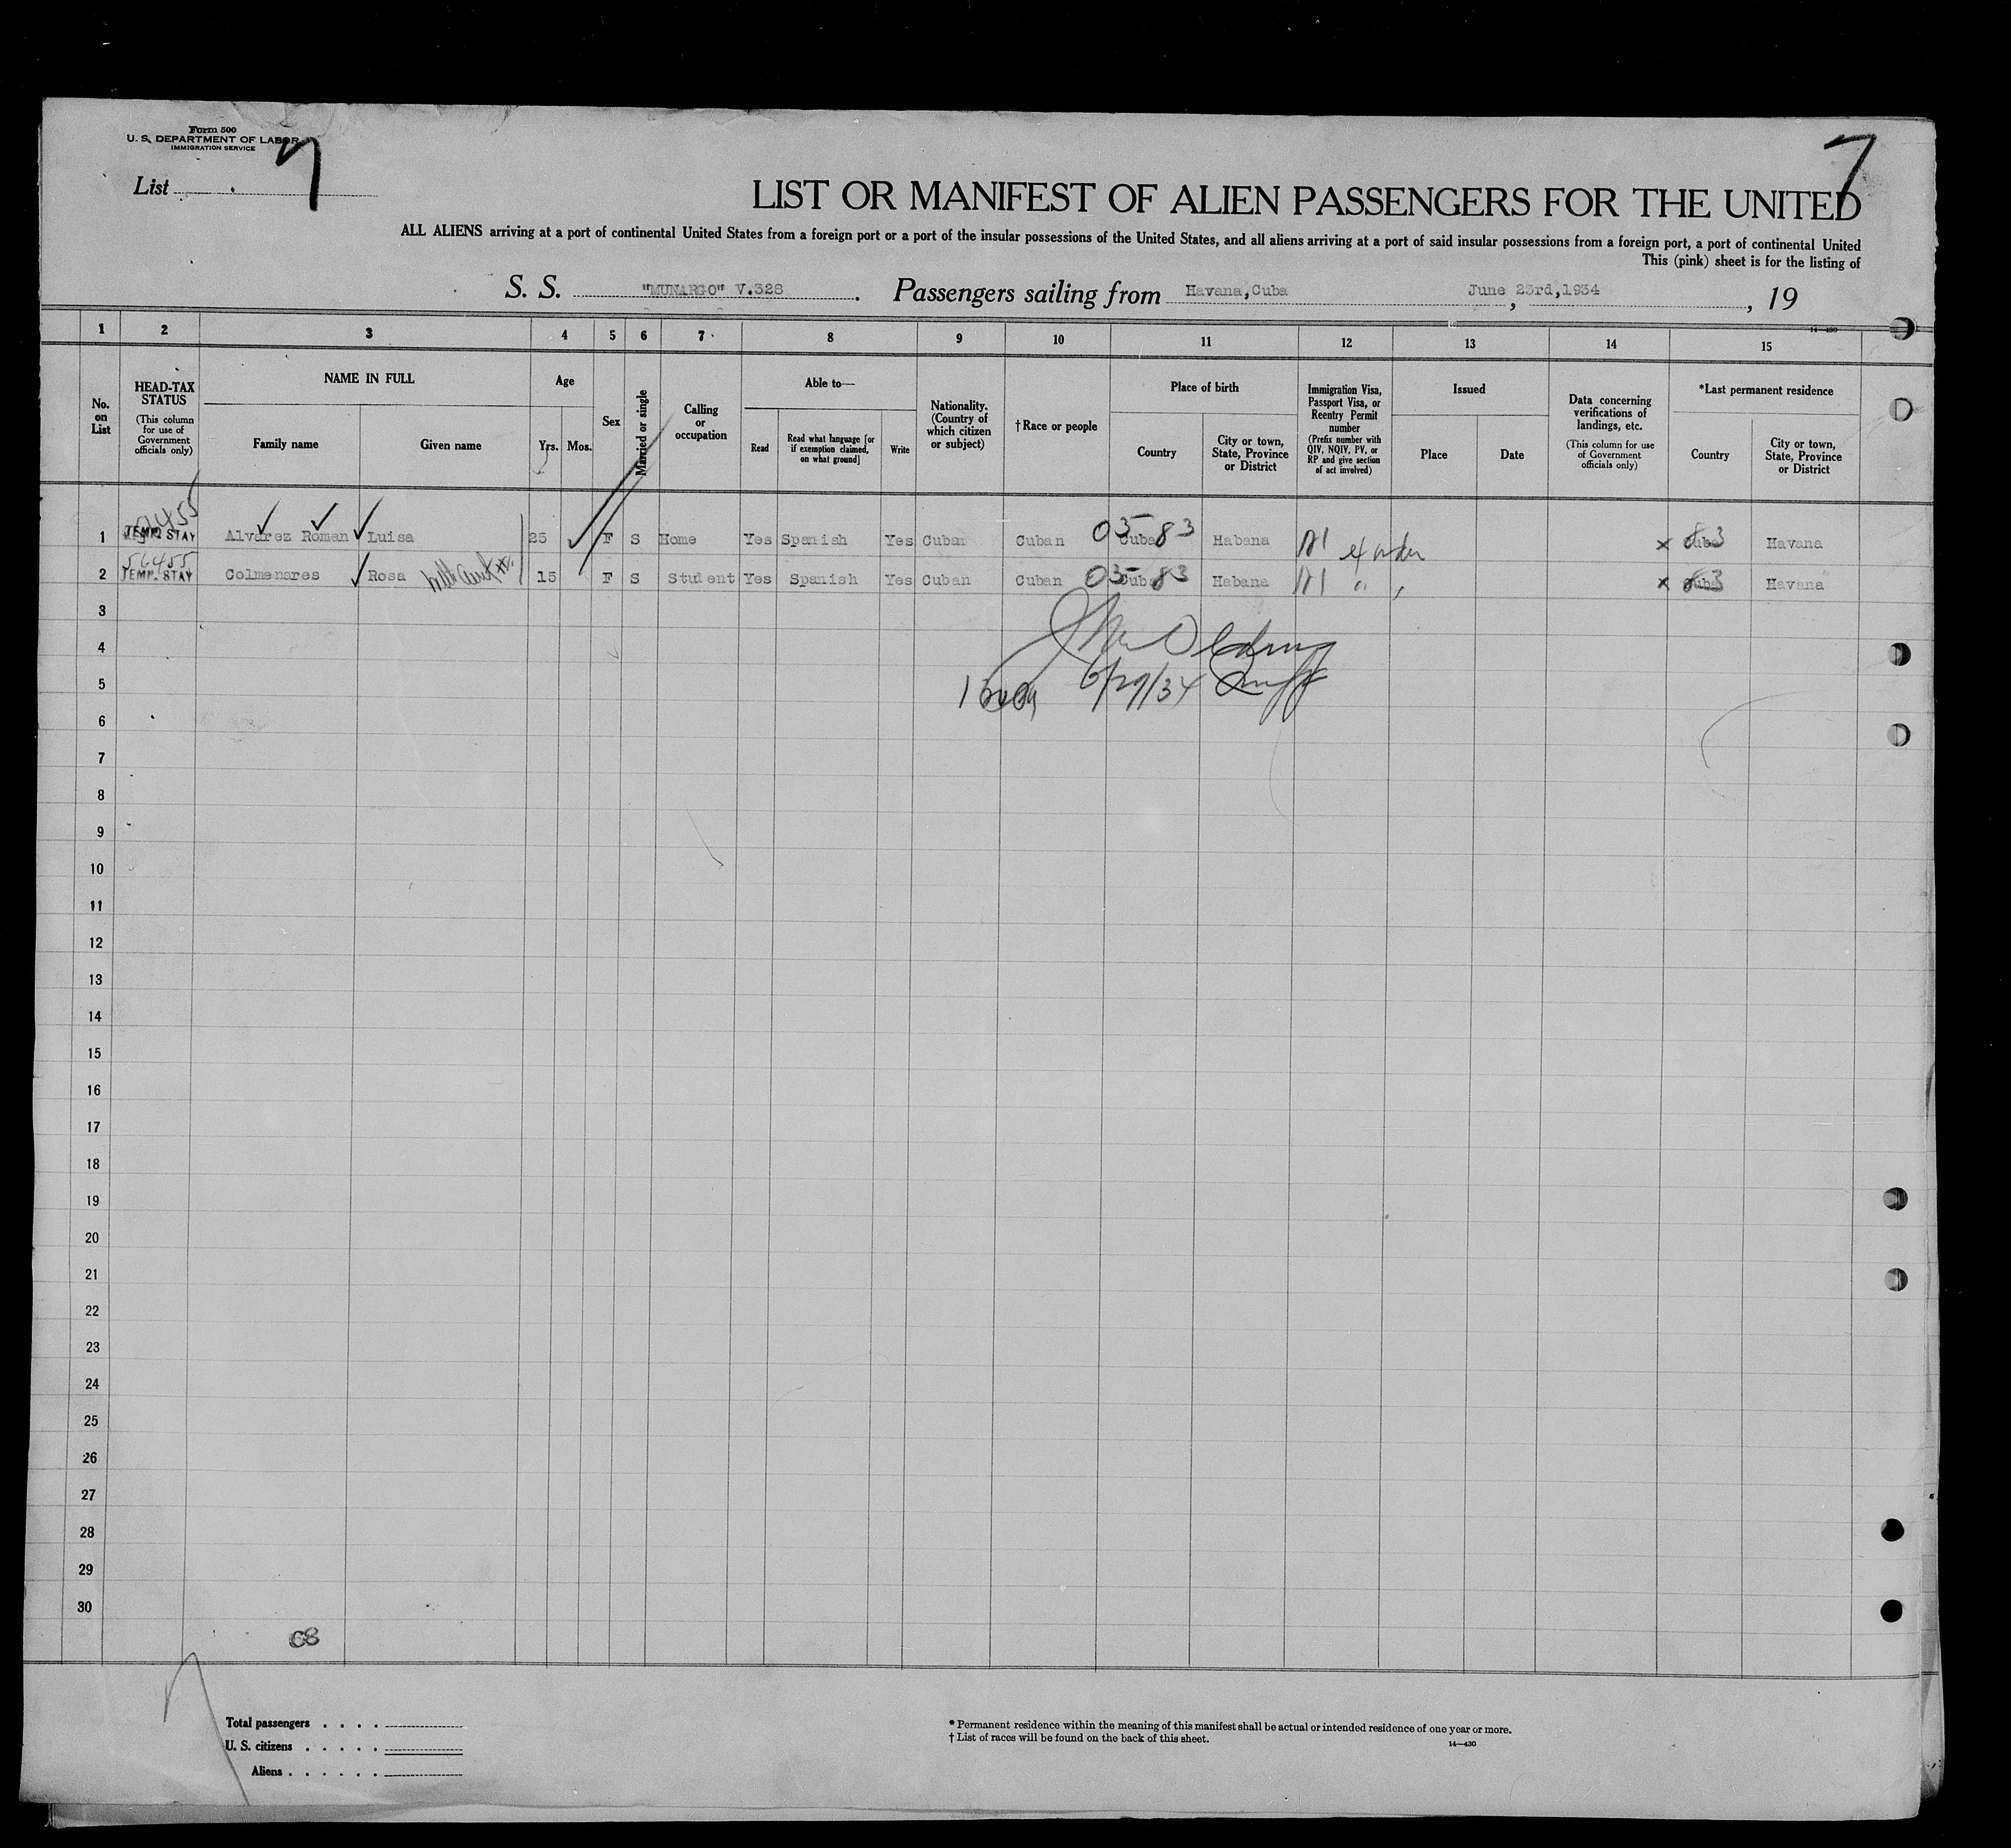 Form 500
U. S. DEPARTMENT OF LABOR
IMMIGRATION SERVICE
List 7
7
LIST OR MANIFEST OF ALIEN PASSENGERS FOR THE UNITED
ALL ALIENS arriving at a port of continental United States from a foreign port or a port of the insular possessions of the United States, and all aliens arriving at a port of said insular possessions from a foreign port, a port of continental United
This (pink) sheet is for the listing of
S. S. "MUNARGO" V.328 . Passengers sailing from Havana,Cuba , June 23rd,1934 , 19
14—430
1 2 3 4 5 6 7 8 9 10 11 12 13 14 15
No. on List
HEAD-TAX STATUS
(This column for use of Government officials only)
NAME IN FULL
Family name
Given name
Age
Yrs. Mos.
Sex
Married or single
Calling or occupation
Able to—
Read
Read what language [or if exemption claimed, on what ground]
Write
Nationality. (Country of which citizen or subject)
† Race or people
Place of birth
Country
City or town, State, Province or District
Immigration Visa, Passport Visa, or Reentry Permit number
(Prefix number with QIV, NQIV, PV, or RP and give section of act involved)
Issued
Place
Date
Data concerning verifications of landings, etc.
(This column for use of Government officials only)
*Last permanent residence
Country
City or town, State, Province or District
1 TEMP. STAY Alvarez Roman Luisa 25 F S Home Yes Spanish Yes Cuban Cuban 05 Cuba 83 Habana x Cuba 83 Havana
56455
2 TEMP. STAY Colmenares Rosa 15 F S Student Yes Spanish Yes Cuban Cuban 05 Cuba 83 Habana x Cuba 83 Havana
3
4
5
6/29/34
6
7
8
9
10
11
12
13
14
15
16
17
18
19
20
21
22
23
24
25
26
27
28
29
30
68
Total passengers . . . .
U. S. citizens . . . . .
Aliens . . . . . .
* Permanent residence within the meaning of this manifest shall be actual or intended residence of one year or more.
† List of races will be found on the back of this sheet.
14—430